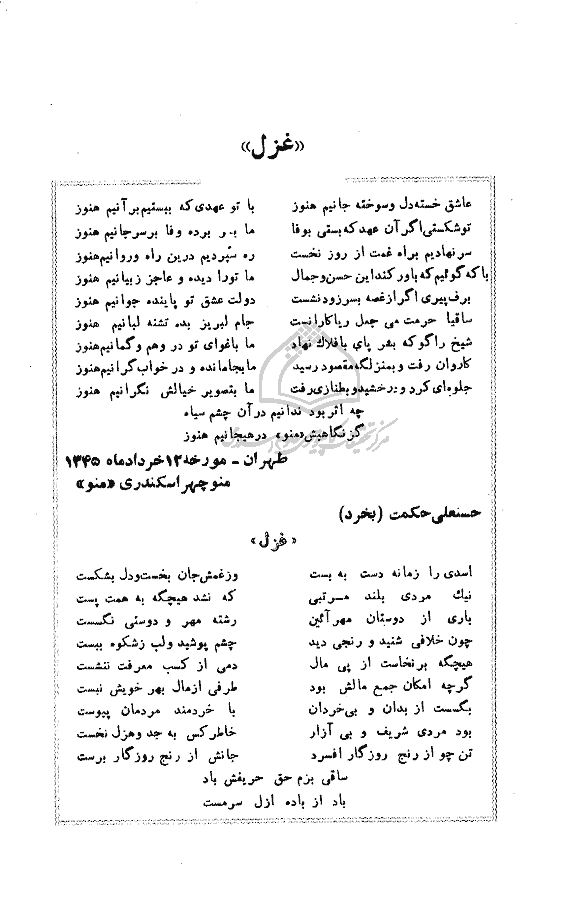 «غزل»
عاشق خسته‌دل و سوخته جانیم هنوز با تو عهدی که ببستیم بر آنیم هنوز
تو شکستی اگر آن عهد که بستی بوفا ما بسر برده وفا بر سر جانیم هنوز
سر نهادیم براه غمت از روز نخست ره سپردیم درین راه و روانیم هنوز
با که گوئیم که باور کند این حسن و جمال ما تو را دیده و عاجز ز بیانیم هنوز
برف پیری اگر از غصه بسر زود نشست دولت عشق تو پاینده جوانیم هنوز
ساقیا حرمت می جعل ریاکارانست جام لبریز بده تشنه لبانیم هنوز
شیخ را گو که بشر پای بافلاک نهاد ما باغوای تو در وهم و گمانیم هنوز
کاروان رفت و بمنزلگه مقصود رسید ما بجا مانده و در خواب گرانیم هنوز
جلوه‌ای کرد و درخشید و بطنازی رفت ما بتصویر خیالش نگرانیم هنوز
چه اثر بود ندانیم در آن چشم سیاه
کز نگاهیش «منو» در هیجانیم هنوز
طهران - مورخه ۱۲ خرداد ماه ۱۳۴۵
منوچهر اسکندری «منو»
حسنعلی حکمت (بخرد)
«غزل»
اسدی را زمانه دست به بست وز غمش جان بخست و دل بشکست
نیک مردی بلند مرتبتی که نشد هیچگه به همت پست
یاری از دوستان مهر آئین رشته مهر و دوستی نگسست
چون خلافی شنید و رنجی دید چشم پوشید و لب ز شکوه ببست
هیچگه بر نخاست از پی مال دمی از کسب معرفت ننشست
گرچه امکان جمع مالش بود طرفی از مال بهر خویش نبست
بگسست از بدان و بی‌خردان با خردمند مردمان پیوست
بود مردی شریف و بی آزار خاطر کس به جد و هزل نخست
تن چو از رنج روزگار افسرد جانش از رنج روزگار برست
ساقی بزم حق حریفش باد
باد از باده ازل سرمست